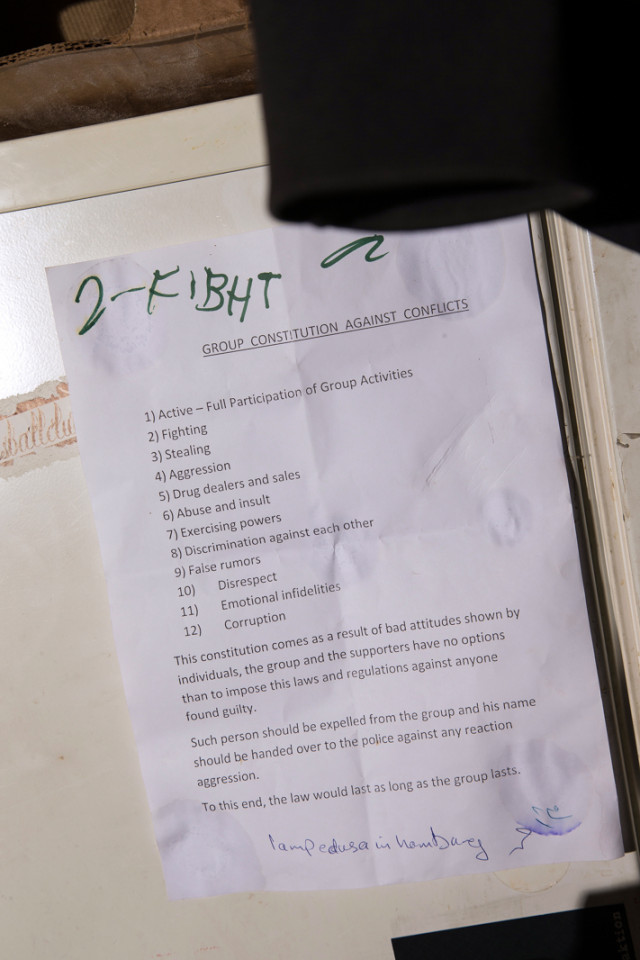 2-KIBHT
GROUP CONSTITUTION AGAINST CONFLICTS
1) Active – Full Participation of Group Activities
2) Fighting
3) Stealing
4) Aggression
5) Drug dealers and sales
6) Abuse and insult
7) Exercising powers
8) Discrimination against each other
9) False rumors
10) Disrespect
11) Emotional infidelities
12) Corruption
This constitution comes as a result of bad attitudes shown by
individuals, the group and the supporters have no options
than to impose this laws and regulations against anyone
found guilty.
Such person should be expelled from the group and his name
should be handed over to the police against any reaction
aggression.
To this end, the law would last as long as the group lasts.
Lampedusa in hamburg